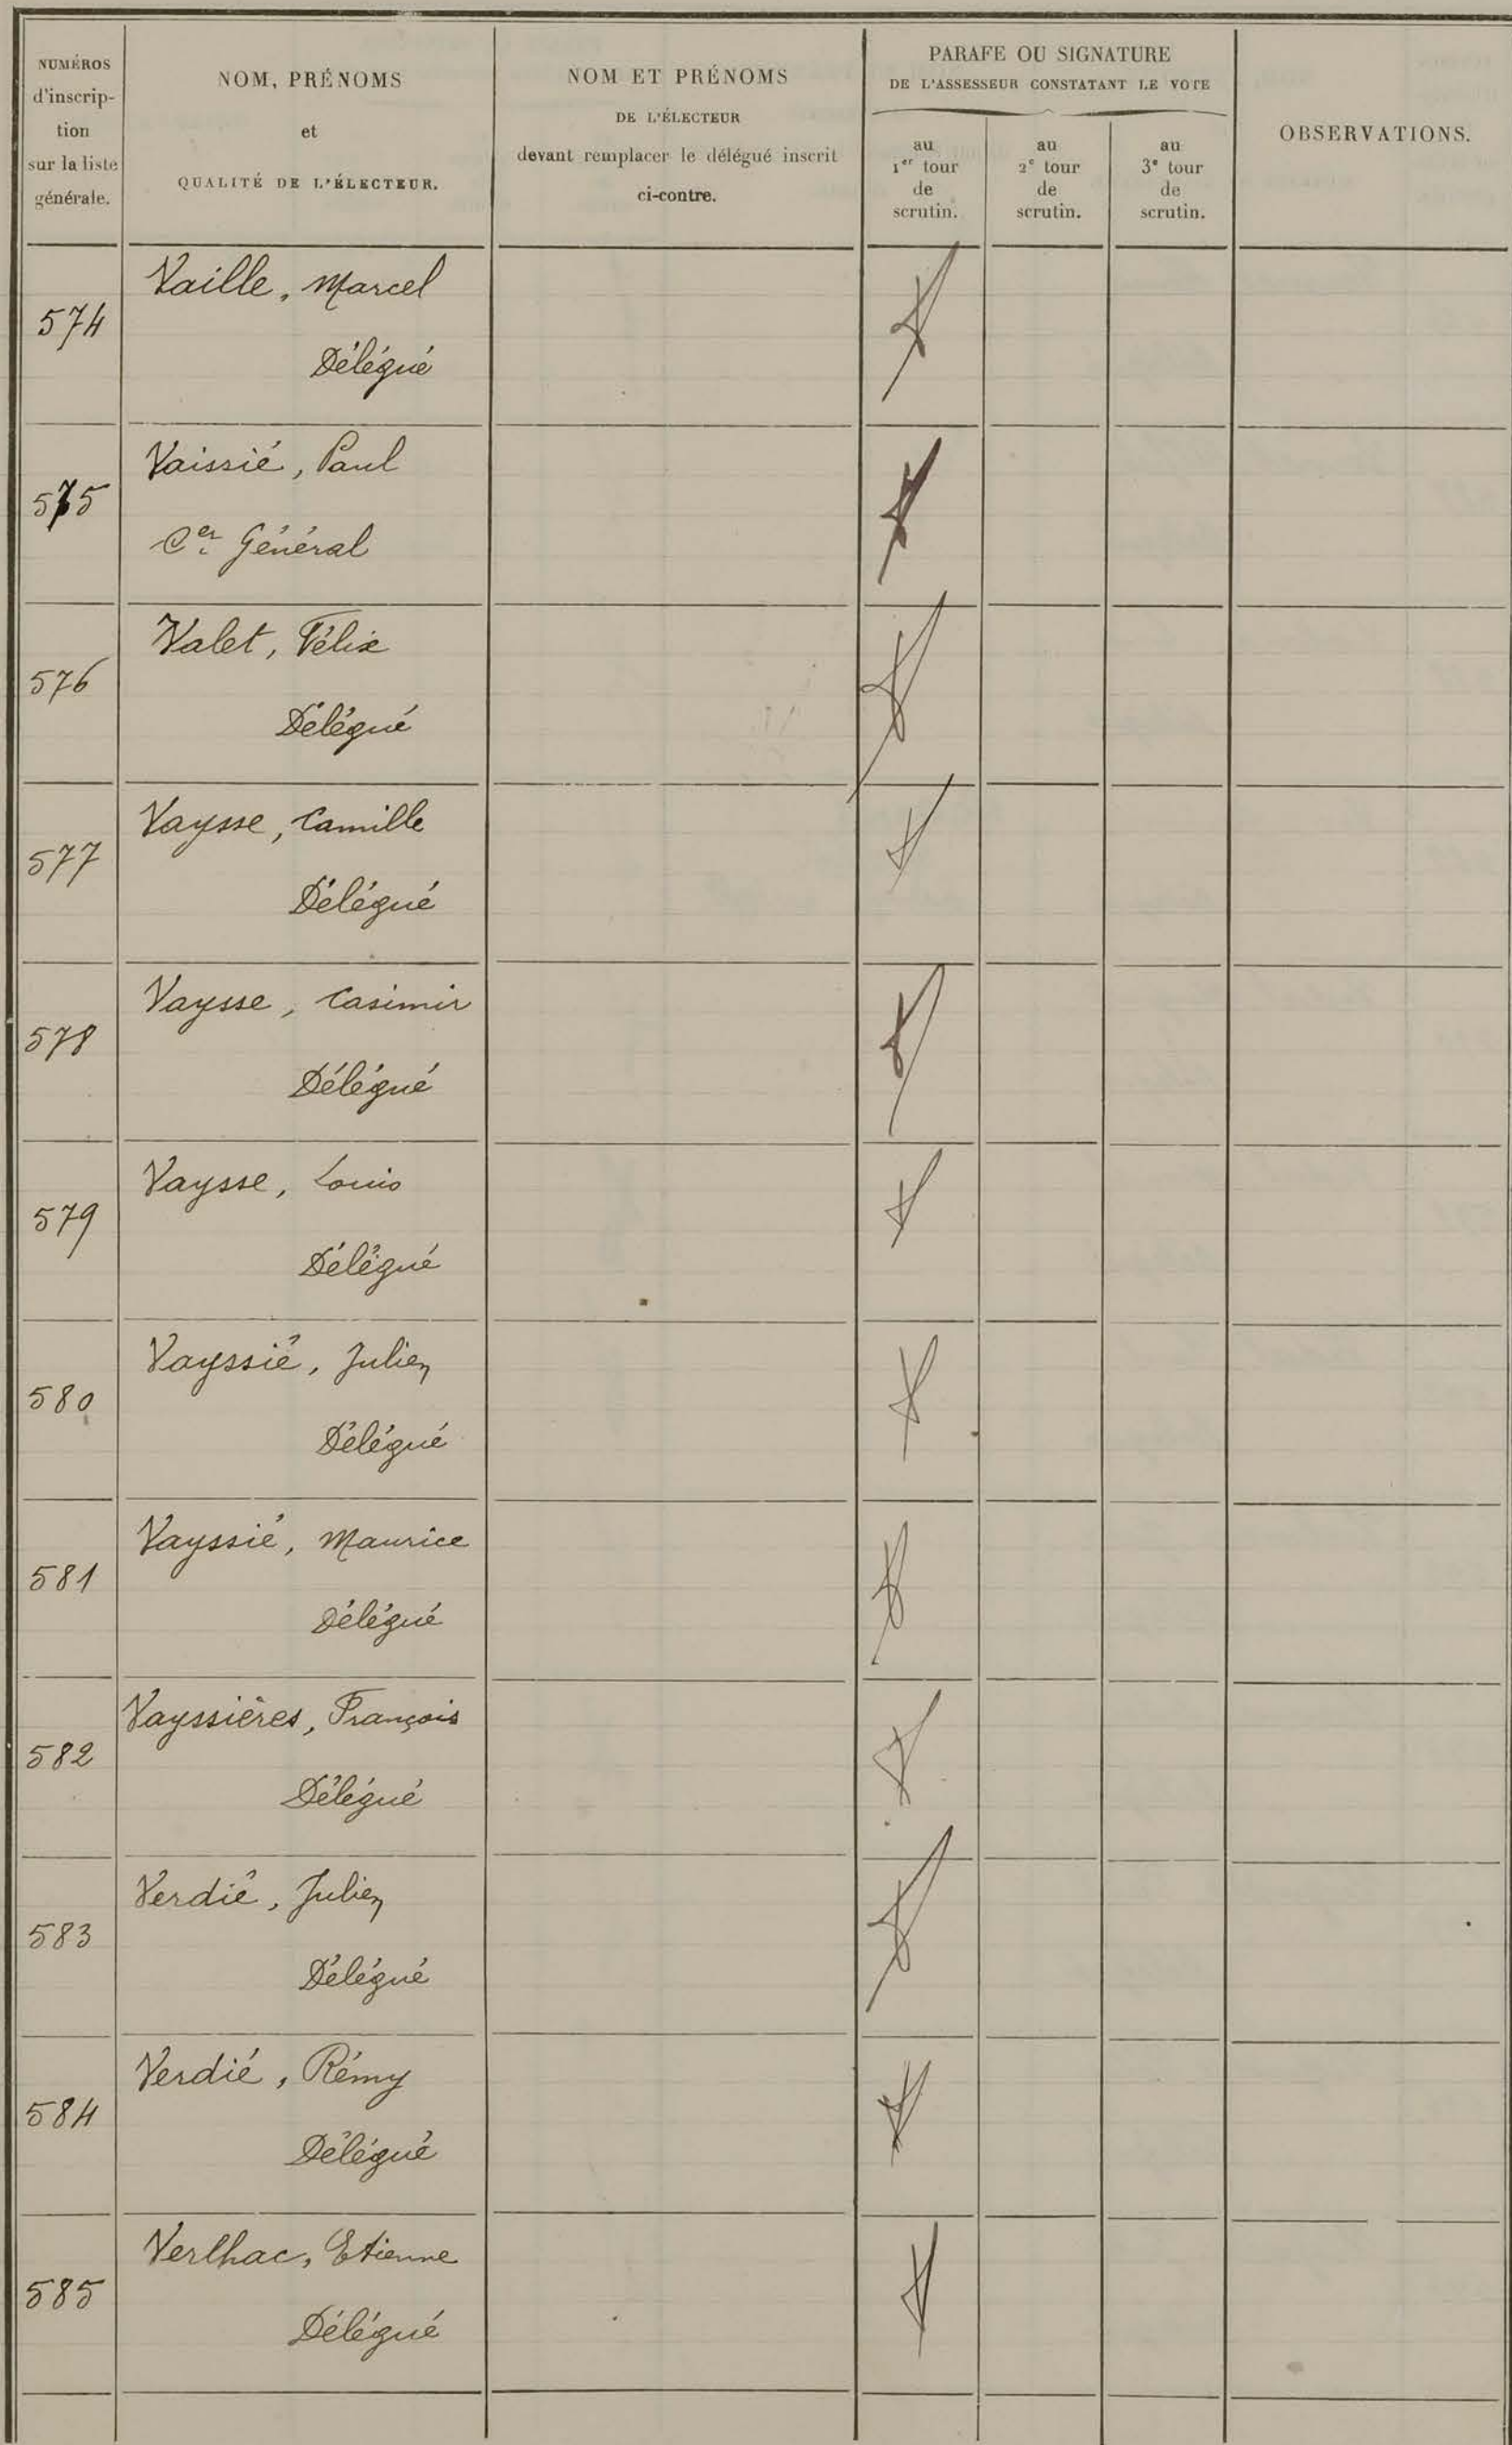 NUMÉROS
d'inscrip-
tion
sur la liste
générale.
NOM, PRÉNOMS
et
QUALITÉ DE L'ÉLECTEUR.
NOM ET PRÉNOMS
DE L'ÉLECTEUR
devant remplacer le délégué inscrit
ci-contre.
PARAFE OU SIGNATURE
DE L'ASSESSEUR CONSTATANT LE VOTE
au
1er tour
de
scrutin.
au
2e tour
de
scrutin.
au
3e tour
de
scrutin.
OBSERVATIONS.
574
Vaille, Marcel
Délégué
575
Vaissié, Paul
Cer Général
576
Valet, Félix
Délégué
577
Vaysse, Camille
Délégué
578
Vaysse, Casimir
Délégué
579
Vaysse, Louis
Délégué
580
Vayssié, Julien
Délégué
581
Vayssié, Maurice
Délégué
582
Vayssières, François
Délégué
583
Verdié, Julien
Délégué
584
Verdié, Rémy
Délégué
585
Verlhac, Etienne
Délégué